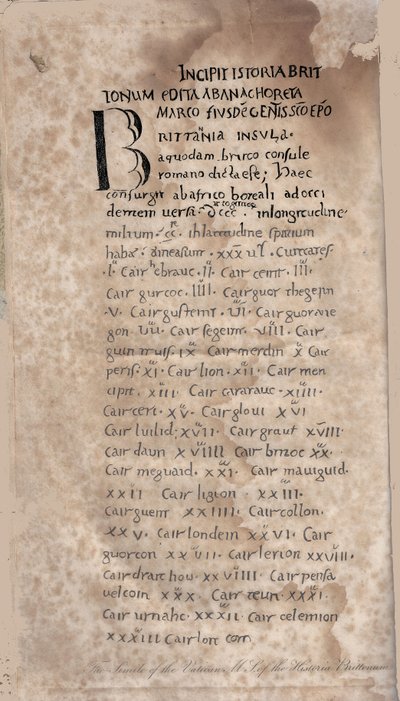 INCIPIT ISTORIA BRIT
TONUM EDITA AB ANACHORETA
MARCO EIUSDĒ GENTIS SCŌ EPŌ
BRITTANIA INSULA·
aquodam britco consule
romano dicta est; Haec
consurgit ab africo boreali ad occi
dentem uersa· dccc· inlongitudine
milium· cc· in latitudine spatium
habæ·
·I· Cair ebrauc· II· Cair ceint· III·
Cair gurcoc· IIII· Cair guor thegern
·V· Cair gusteint· VI· Cair guorane
gon· VII· Cair segeint· VIII· Cair
guin truis· IX Cair merdin X Cair
peris· XI· Cair lion· XII· Cair men
cipit· XIII· Cair caratauc· XIIII·
Cair ceri· XV· Cair gloui XVI
Cair luilid· XVII· Cair graut XVIII·
Cair daun XVIIII Cair britoc XX·
Cair meguaid· XXI· Cair mauiguid·
XXII Cair ligion· XXIII·
Cair guent XXIIII· Cair collon·
XXV· Cair londein XXVI· Cair
guorcon XXVII· Cair lerion XXVIII·
Cair drait hou· XXVIIII· Cair pensa
uelcoin XXX· Cair teun· XXXI·
Cair urnahc· XXXII· Cair celemion
XXXIII Cair loit coit
Fac Simile of the Vatican M S. of the Historia Brittonum